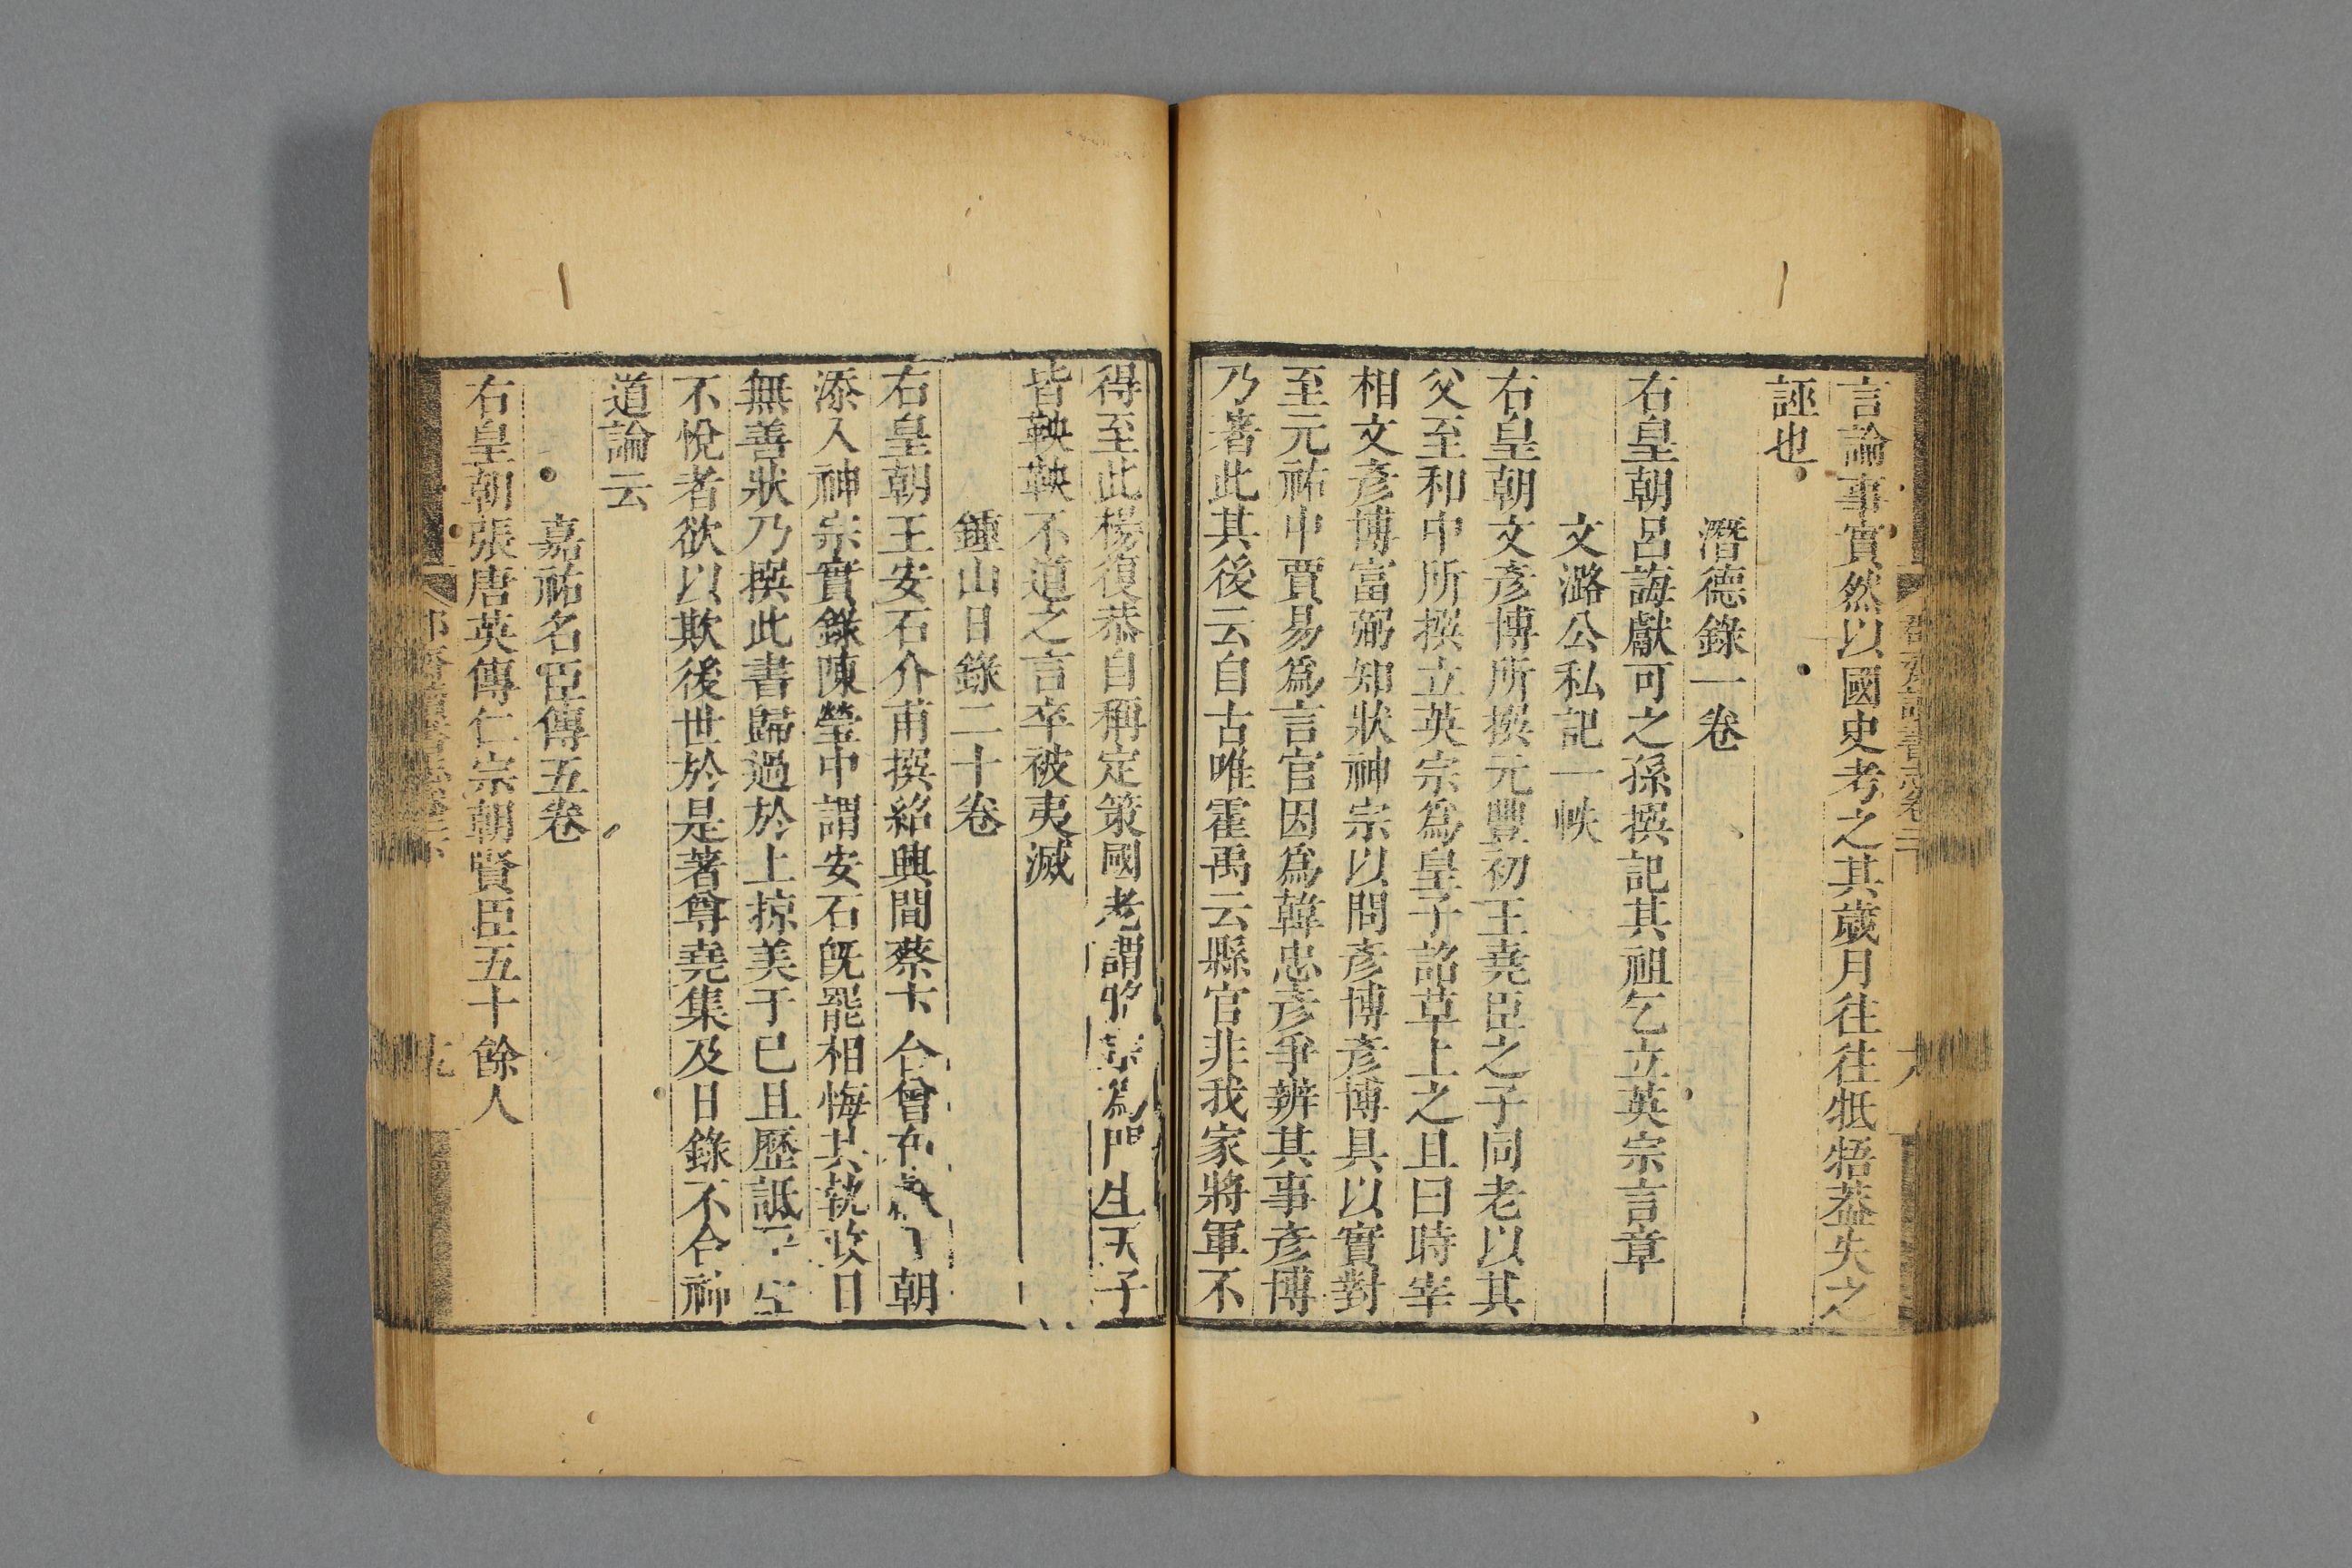 言論事實然以國史考之其歲月往往牴牾葢失之
誣也
潛德錄一卷
右皇朝呂誨獻可之孫撰記其祖乞立英宗言章
文潞公私記一帙
右皇朝文彥博所撰元豐初王堯臣之子同老以其
父至和中所撰立英宗爲皇子詔草上之且曰時宰
相文彥博富弼知狀神宗以問彥博彥博具以實對
至元祐中賈易爲言官因爲韓忠彥爭辨其事彥博
乃著此其後云自古唯霍禹云縣官非我家將軍不
得至此楊復恭自稱定策國老謂昭宗爲門生天子
皆鞅鞅不道之言卒被夷滅
鍾山日錄二十卷
右皇朝王安石介甫撰紹興間蔡卞合曾布 朝
添入神宗實錄陳瑩中謂安石旣罷相悔其執政日
無善狀乃撰此書歸過於上掠美于己且歷詆
不悅者欲以欺後世於是著尊堯集及日錄不合神
道論云
嘉祐名臣傳五卷
右皇朝張唐英傳仁宗朝賢臣五十餘人